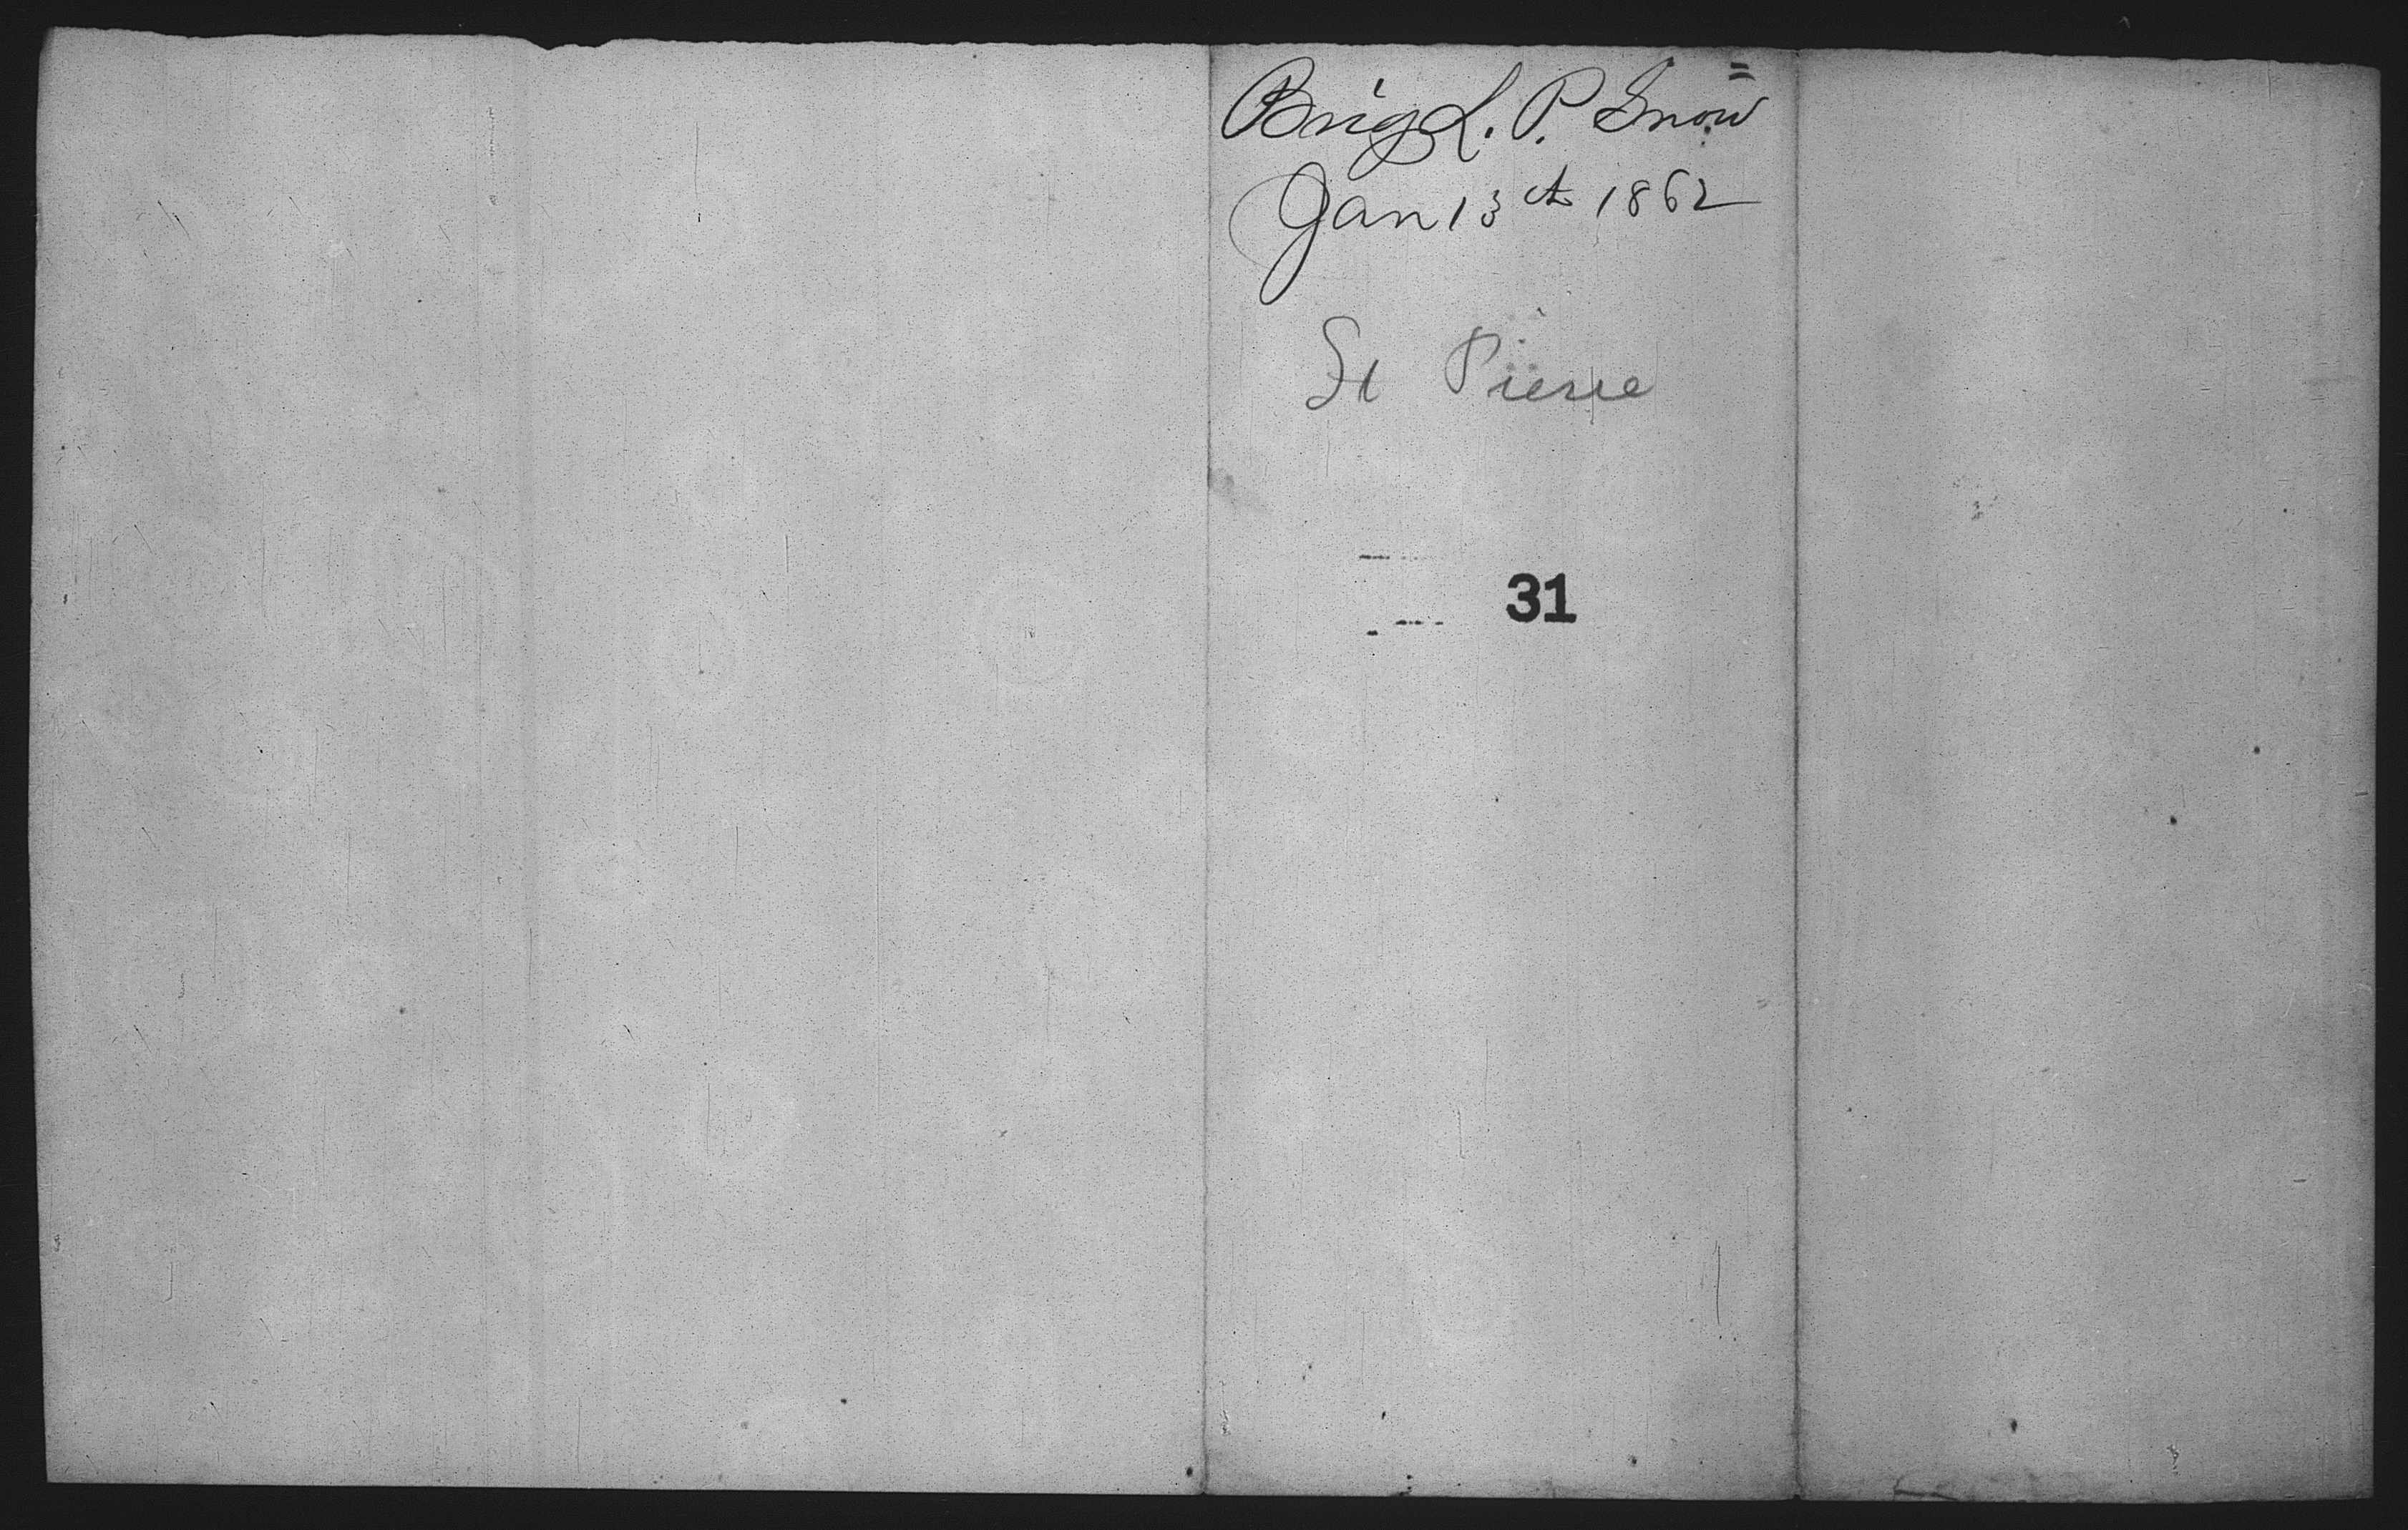 Brig L. P. Snow
Jan 13th 1862
St Pierre
31